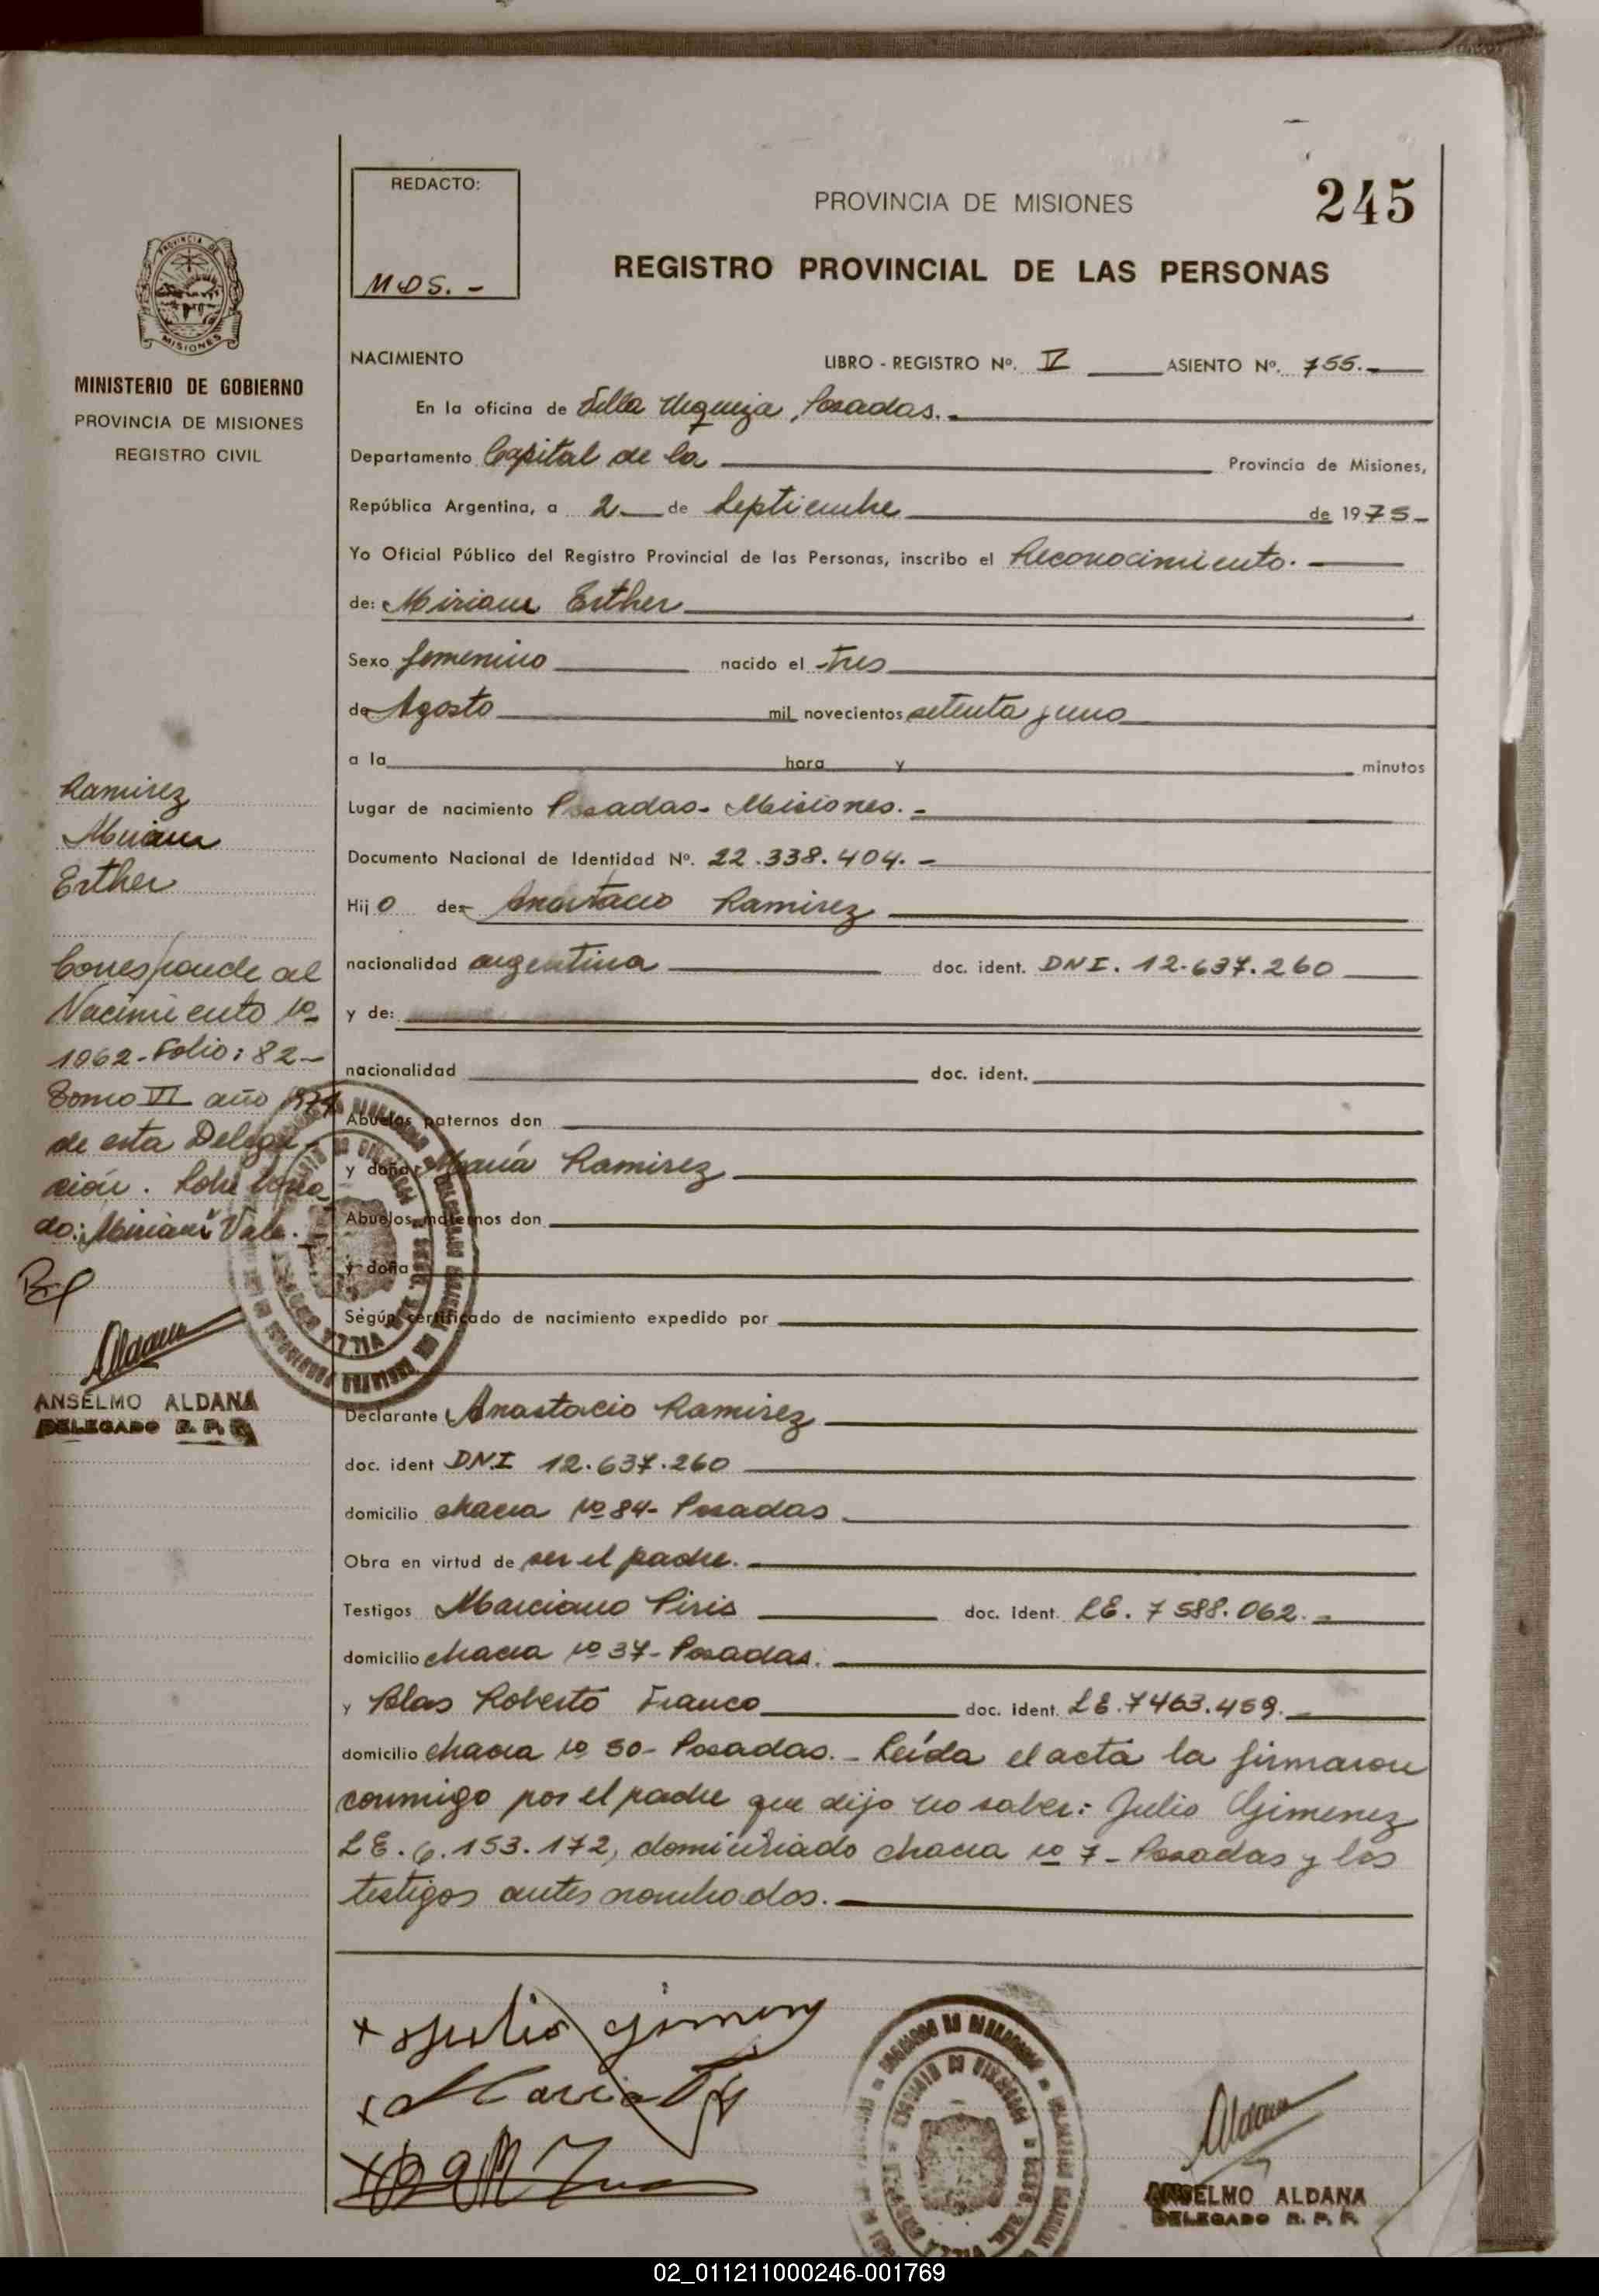 REDACTO:
MDS. -
PROVINCIA DE MISIONES
245
REGISTRO PROVINCIAL DE LAS PERSONAS
PROVINCIA DE
MISIONES
MINISTERIO DE GOBIERNO
PROVINCIA DE MISIONES
REGISTRO CIVIL
NACIMIENTO LIBRO - REGISTRO Nº. V ASIENTO Nº. 755.
En la oficina de Villa Urquiza, Posadas.
Departamento Capital de la Provincia de Misiones,
República Argentina, a 2 de Septiembre de 1975
Yo Oficial Público del Registro Provincial de las Personas, inscribo el Reconocimiento.
de: Miriam Esther
Sexo femenino nacido el tres
de Agosto mil novecientos setenta y uno
a la hora y minutos
Lugar de nacimiento Posadas- Misiones. -
Documento Nacional de Identidad Nº. 22.338.404. -
Hijo de Anastacio Ramirez
nacionalidad argentina doc. ident. DNI. 12.637.260
y de:
nacionalidad doc. ident.
Abuelos paternos don
y doña María Ramirez
Abuelos maternos don
y doña
Según certificado de nacimiento expedido por
Declarante Anastacio Ramirez
doc. ident DN.I 12.637.260
domicilio chacra Nº 84- Posadas
Obra en virtud de ser el padre.
Testigos Marciano Piris doc. ident. LE. 7588.062. -
domicilio chacra Nº 37- Posadas.
y Blas Roberto Franco doc. ident. LE.7463.459.
domicilio chacra Nº 50- Posadas. - Leída el acta la firmaron
conmigo por el padre que dijo no saber: Julio Gimenez
LE. 6.153.172, domiciliado chacra Nº 7- Posadas y los
testigos antes nombrados.
Ramirez
Miriam
Esther
Corresponde al
Nacimiento Nº
1062- Folio: 82-
Tomo VI año 1971
de esta Delega-
ción. Sobre borra
do: Miriam Vale.
Aldana
ANSELMO ALDANA
DELEGADO R. P. P.
x Julio Gimenez
Aldana
ANSELMO ALDANA
DELEGADO R. P. P.
02_011211000246-001769